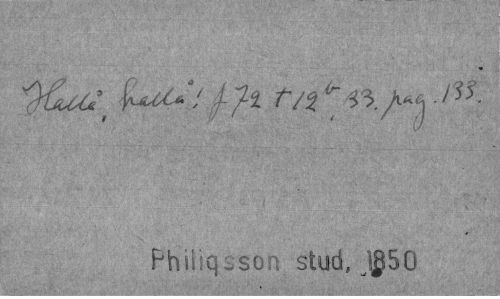 Hallå, hallå! f 72 + 12b, 33. pag. 133.
Philiqsson stud, 1850